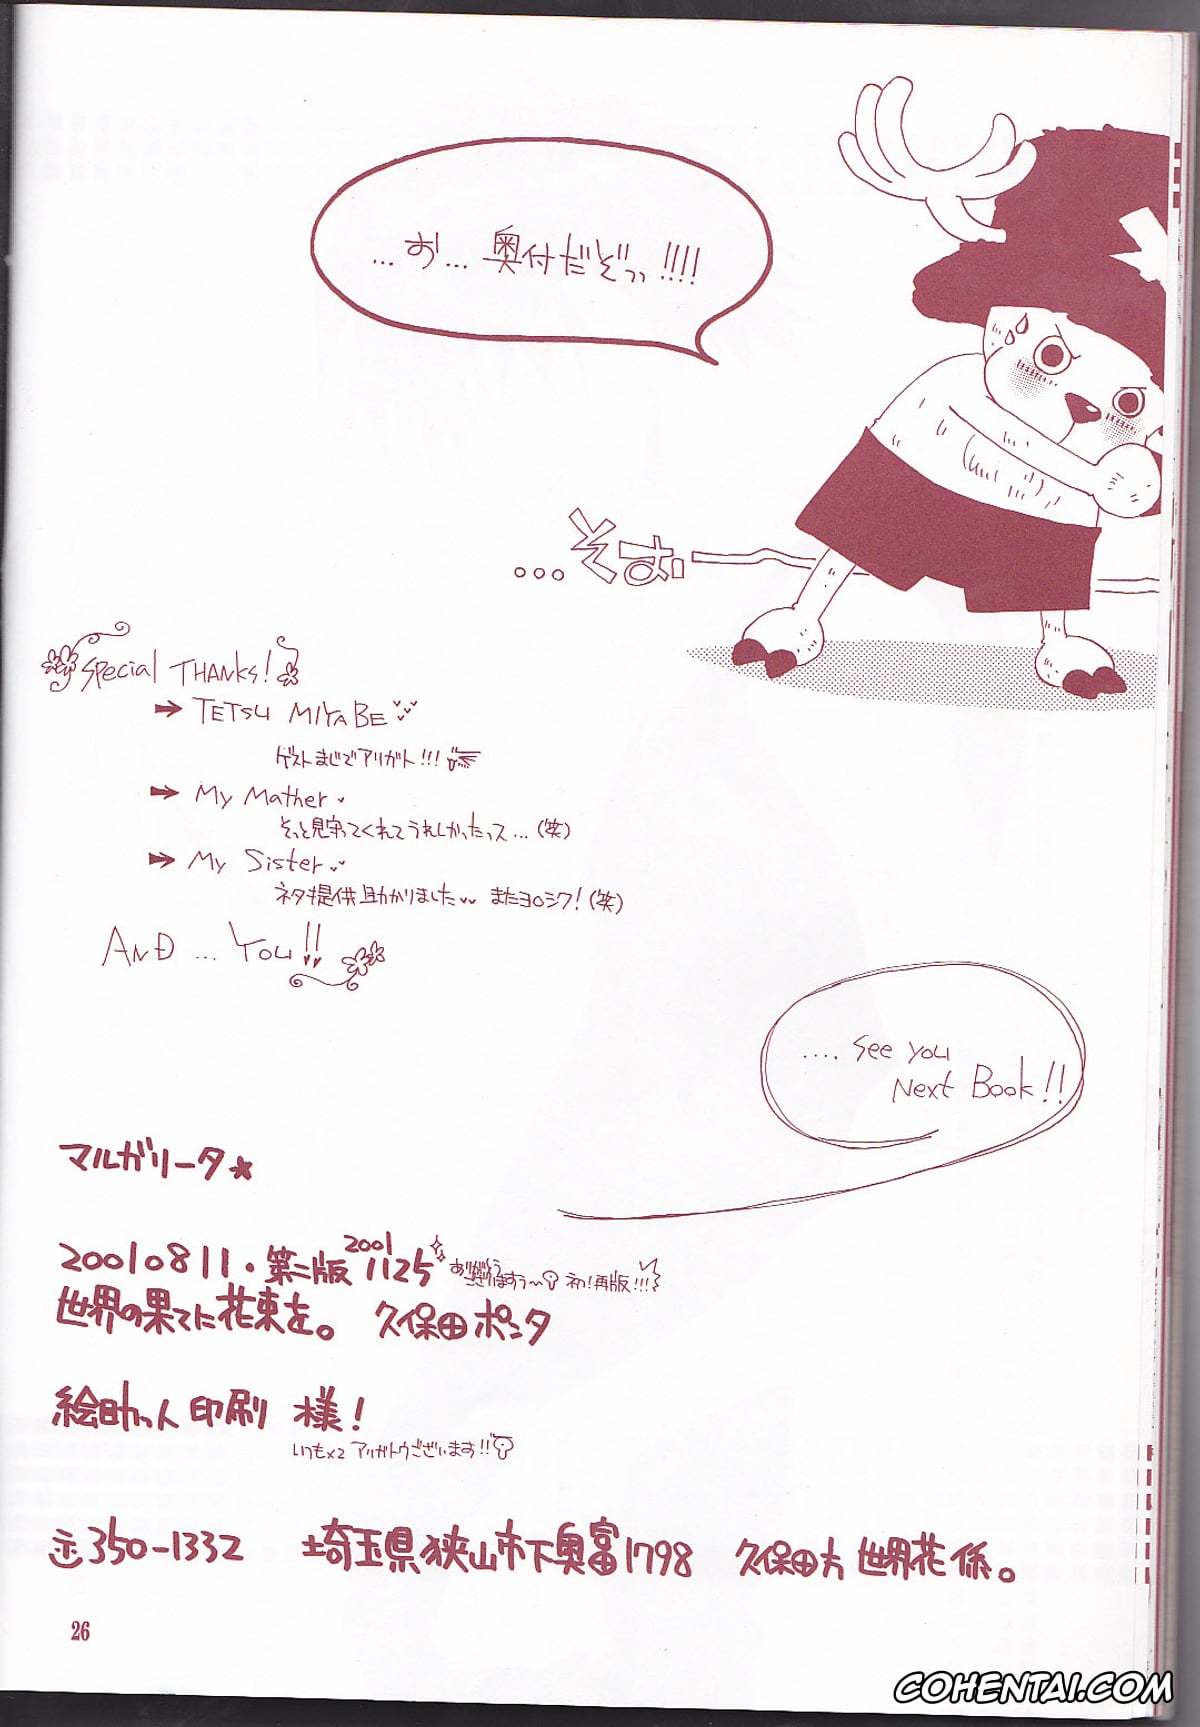 …お…奥付だぞっっ!!!!
…そお
Special THANKS!
TETSU MIYABE
ゲストまじでアリガト!!!
My Mather
そっと見守ってくれてうれしかったっス…(笑)
My Sister
ネタ提供助かりました またヨロシク!(笑)
AND … YOU!!
.... See you
Next Book!!
マルガリータ★
20010811.第二版 2001 1125 ありがとう ございますぅ〜 初!再版!!!
世界の果てに花束を。 久保田ポンタ
絵助っ人印刷 様!
いつも×2 アリガトウございます!!
〒350-1332 埼玉県狭山市下奥富1798 久保田方 世界花係。
26
COHENTAI.COM